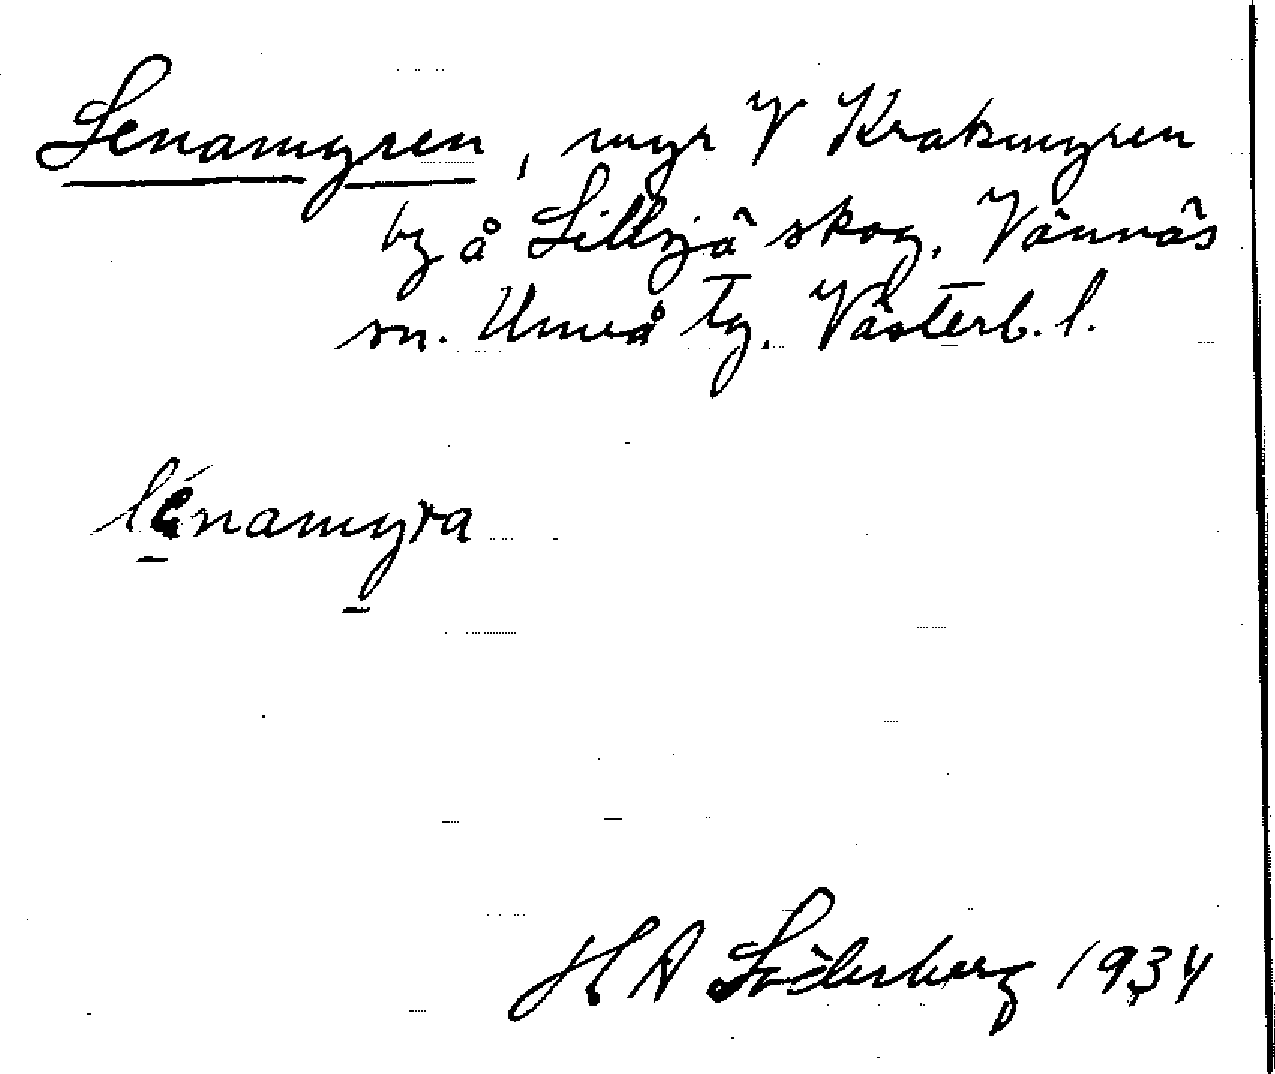 Lenamyren, myr V Krakmyren
by å Lillsjö skog. Vännäs
sn. Umeå tg. Västerb. l.
lénamyra
H A Söderberg 1934